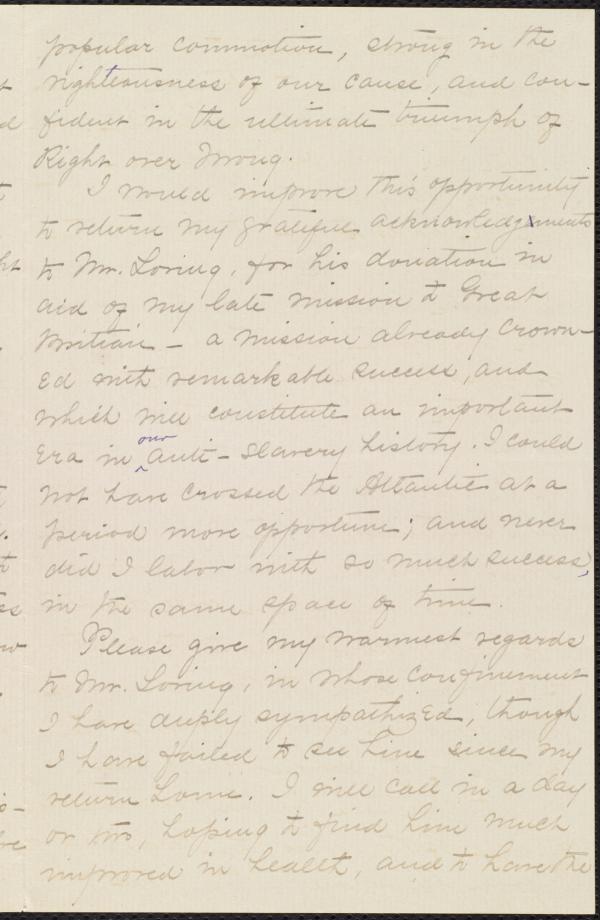 popular commotion, strong in the
righteousness of our cause, and con-
fident in the ultimate triumph of
Right over Wrong.
I would improve this opportunity
to return my grateful acknowledgments
to Mr. Loring, for his donation in
aid of my late mission to Great
Britian - a mission already crown-
ed with remarkable success, and
which will constitute an important
era in our anti-slavery history. I could
not have crossed the Atlantic at a
period more opportune; and never
did I labor with so much success,
in the same space of time.
Please give my warmest regards
to Mr. Loring, in whose confinement
I have deeply sympathized, though
I have failed to see him since my
return home. I will call in a day
or two, hoping to find him much
improved in health, and to have the